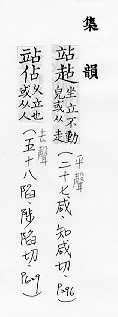 集韻
站趈坐立不動皃或从走(二十七咸·知咸切·P296)平聲
站佔久立也或从人(五十八陷·陟陷切·P629)去聲